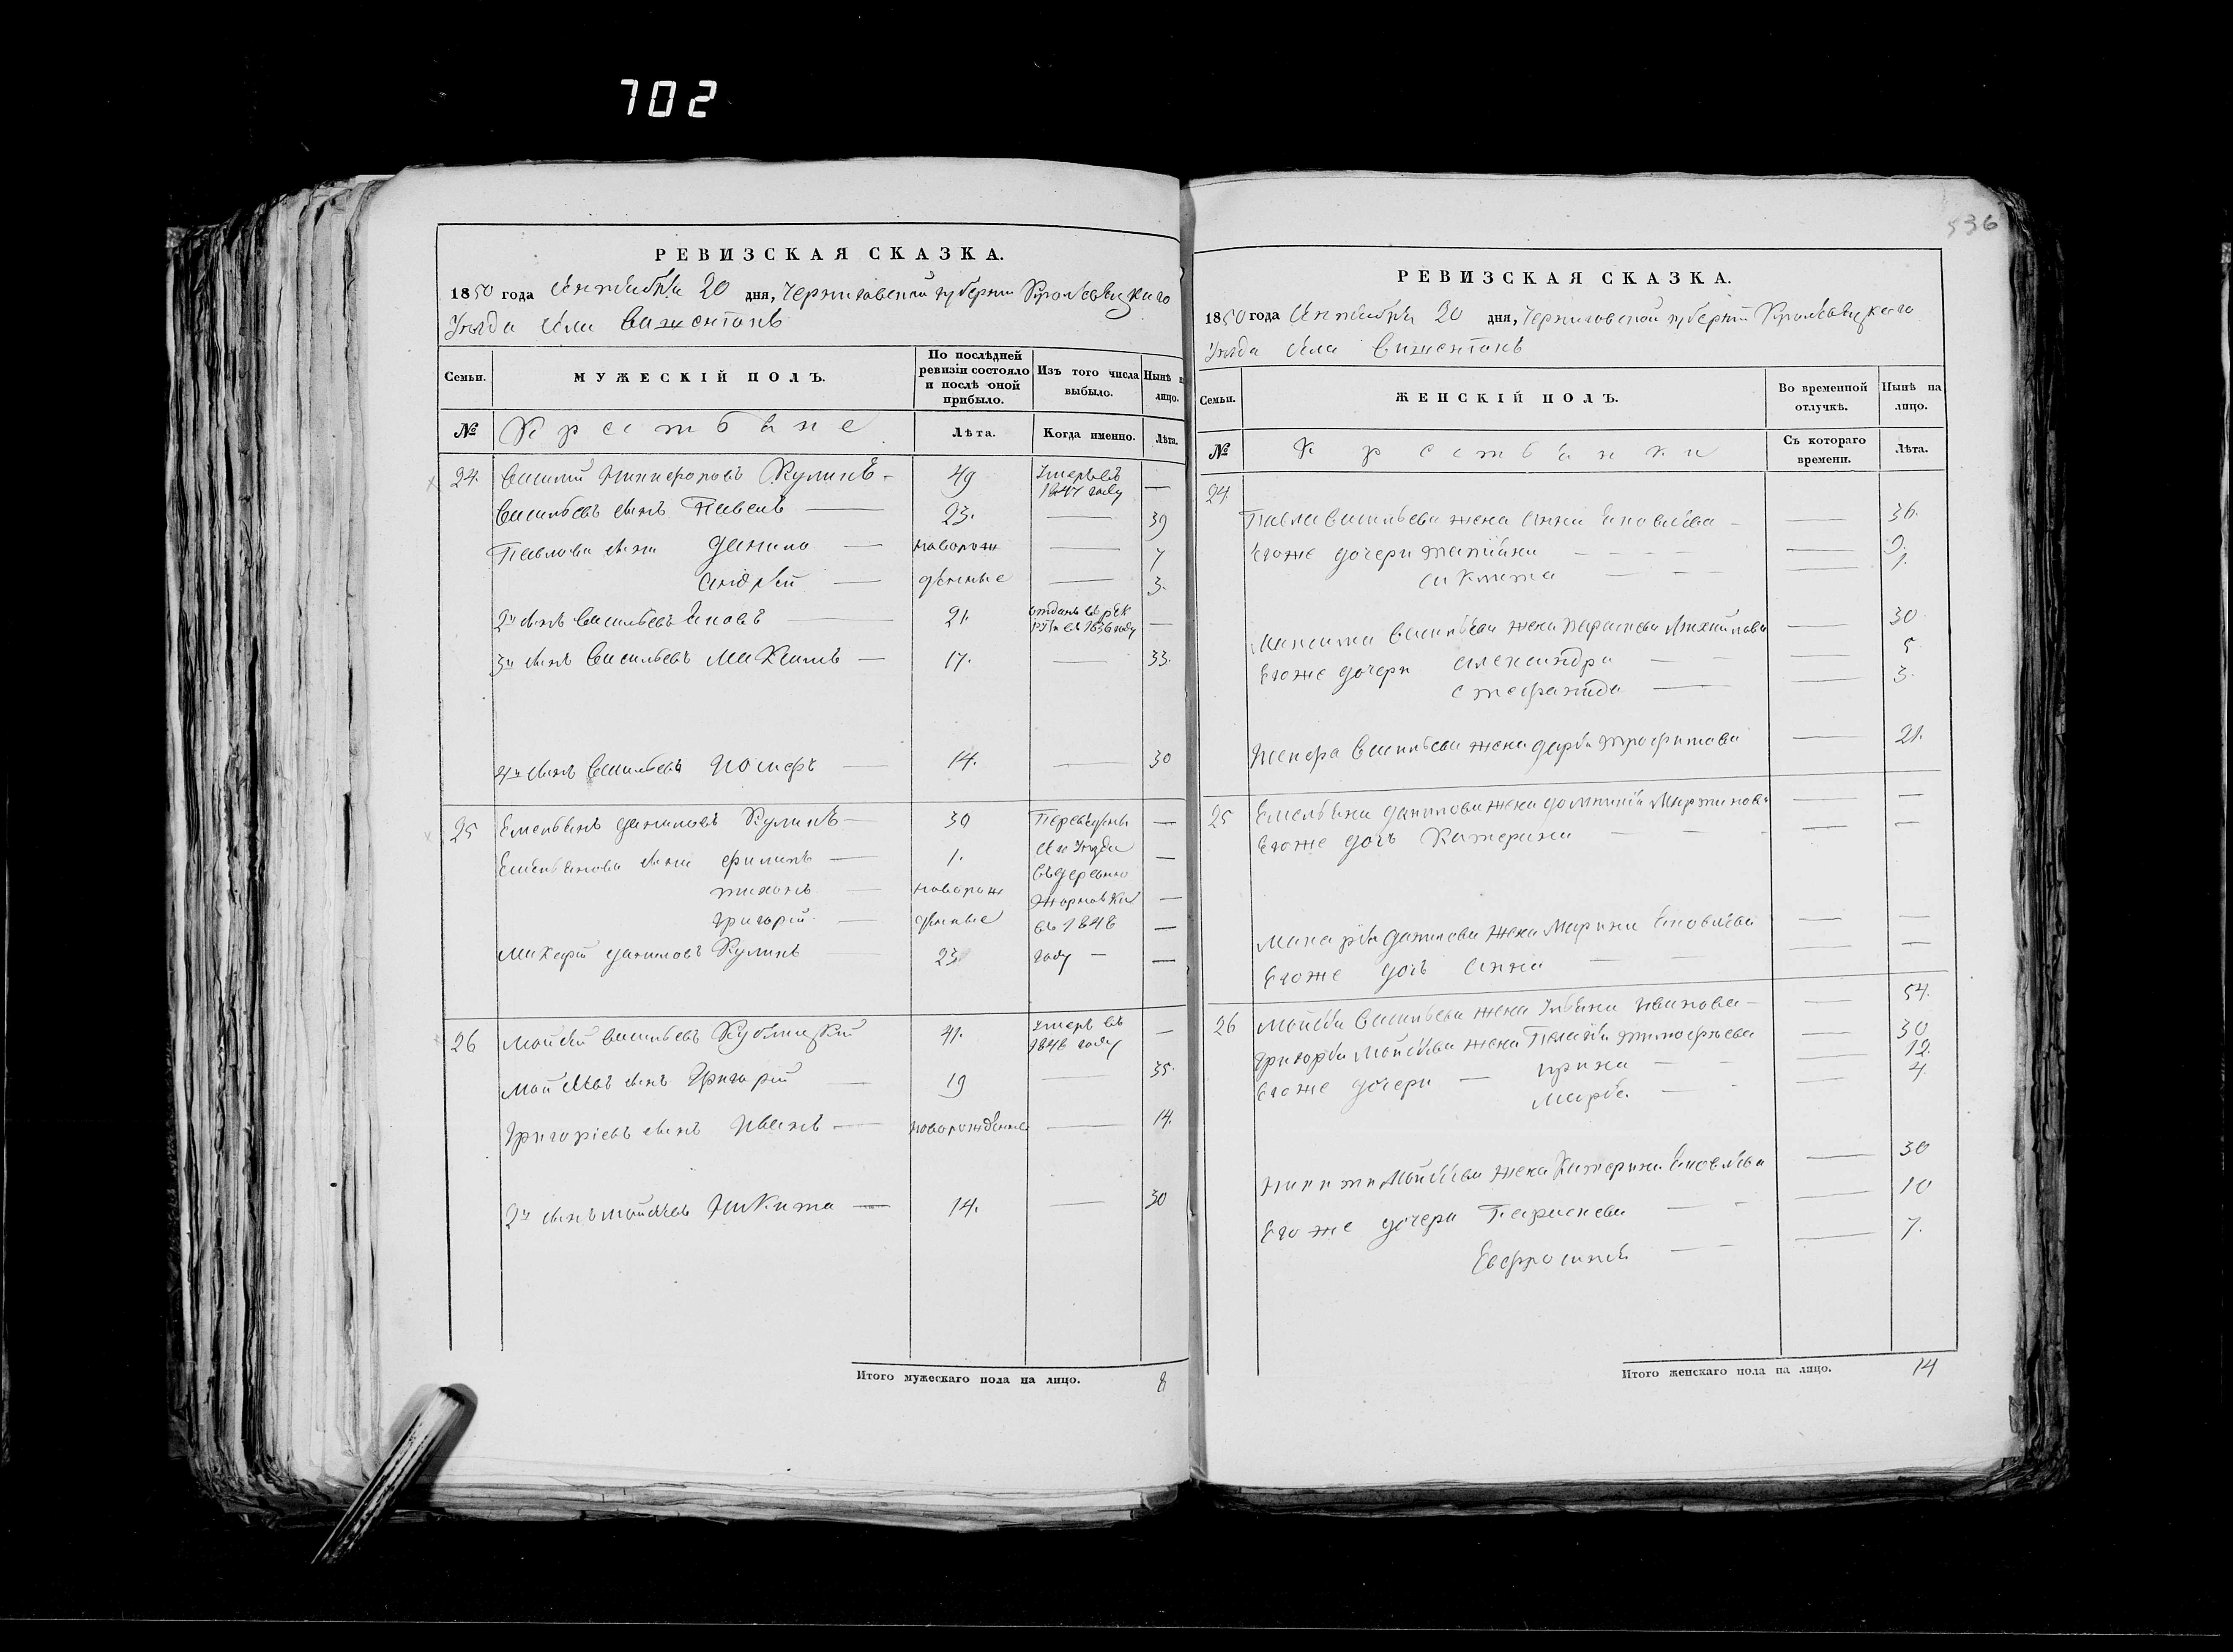 702
РЕВИЗСКАЯ СКАЗКА.
1850 года Сентября 20 дня, Черниговской губернии Кролевецкого
Уезда села
Семьи.
МУЖЕСКІЙ ПОЛЪ.
По послѣдней ревизіи состояло и послѣ оной прибыло.
Изъ того числа выбыло.
Нынѣ н лицо.
№
Крестьяне
Лѣта.
Когда именно.
Лѣта.
24. Василий Никифоровъ Куликъ - 49 Умеръ въ 1847 году —
Васильевъ сынъ Павелъ — 23. — 39
Павлова сыни Данило — новорож — 7
Андрей — денные — 3.
2й сынъ Васильевъ Яковъ — 21. отданъ въ рек въ 1836 году —
3й сынъ Васильевъ Максимъ — 17. — 33.
4й сынъ Васильевъ Иосифъ — 14. — 30
25 Емельянъ Даниловъ Куликъ — 30 Переведены —
Емельянова сыни Филипъ — 1. —
Тихонъ — новорож —
Григорій — денные въ 1848 —
Макарій Даниловъ Куликъ 23 году — —
26 Мойсей Васильевъ Кублицкій 41. Умеръ въ 1848 году —
Мойсеевъ сынъ Григорій — 19 — 35.
Григоріевъ сынъ Иванъ — новорожденные — 14.
2й сынъ Мойсеевъ Никита — 14. — 30
Итого мужескаго пола на лицо. 8
536
РЕВИЗСКАЯ СКАЗКА.
1850 года Сентября 20 дня, Черниговской губерній Кролевецкаго
Уезда села
Семьи.
ЖЕНСКІЙ ПОЛЪ.
Во временной отлучкѣ.
Нынѣ на лицо.
№
Крестьянки
Съ котораго времени.
Лѣта.
24
Павла Васильева жена Анна Яковлева — — 36.
Егоже дочери Татіяна — 9.
— 1.
Максима Васильева жена Параскева Михайлова — 30
Егоже дочери Александра — — 5.
Стефанида — — 3.
Иосифа Васильева жена Дарья Трофимова — 21.
25 Емельяна Данилова жена Домникія Мартинова — —
Егоже дочь Катерина — — —
Макарія Данилова жена Марина Яковлева — —
Егоже дочь Анна — — —
26 Мойсея Васильева жена Ульяна Иванова — — 54.
Григорія Мойсеева жена Пелагія Тимофѣева — 30
Егоже дочери — Ирина — — 12.
Марья — — 4.
Никиты Мойсеева жена Катерина Яковлева — 30
Егоже дочери Параскева — — 10
Евфросинія — — 7.
Итого женскаго пола на лицо. 14